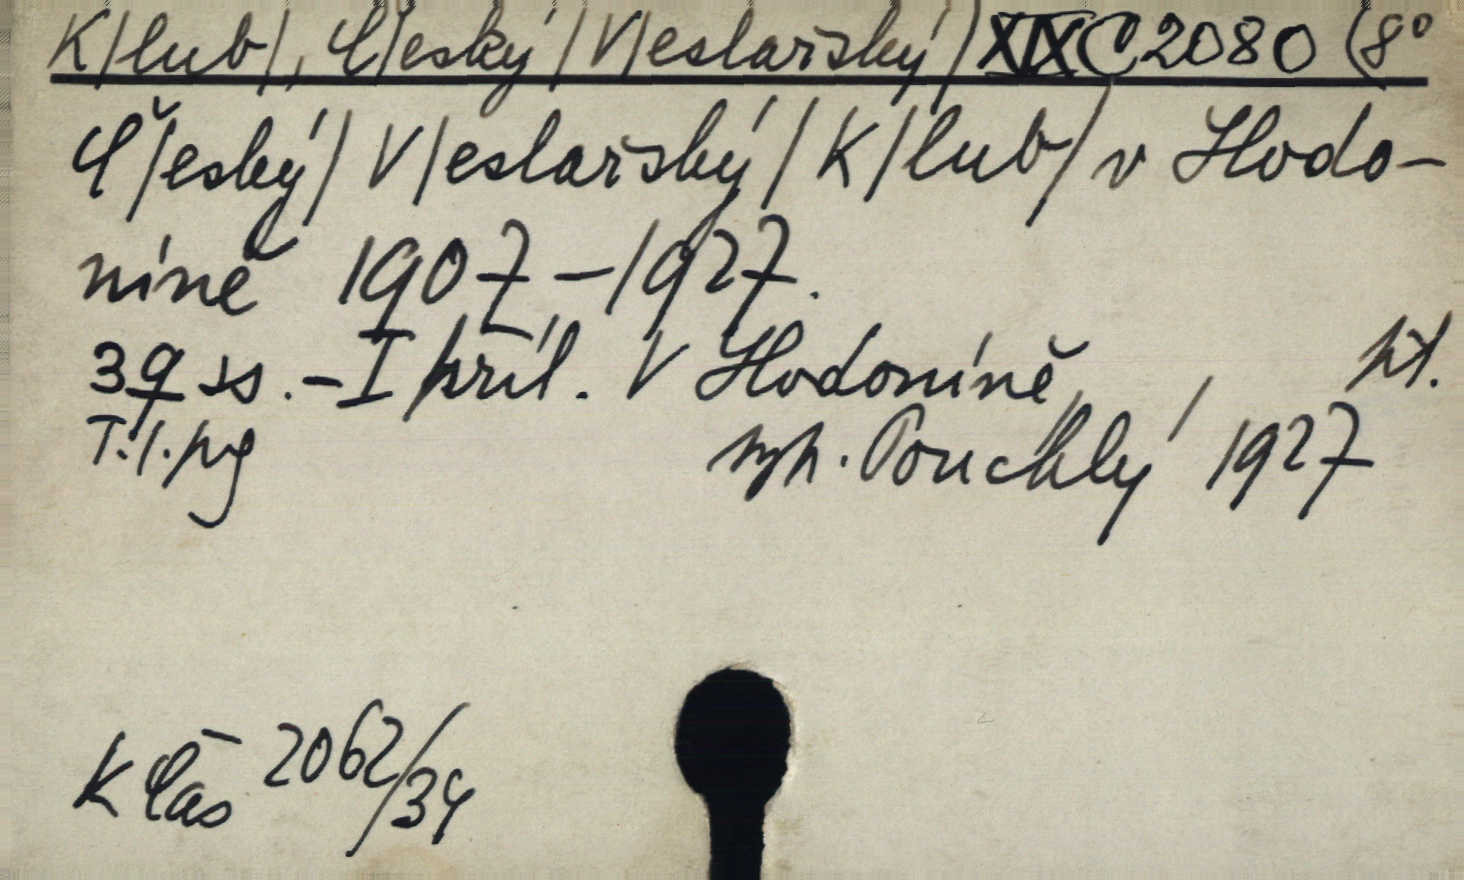 K/lub/, Č/eský/ V/eslařský/ XIX C 2080 (8°
Č/eský/ V/eslařský/ K/lub/ v Hodo-
níně 1907-1927.
39 ss. - I příl. V Hodoníně,
T. 1. 1927
K Čas 2062/34